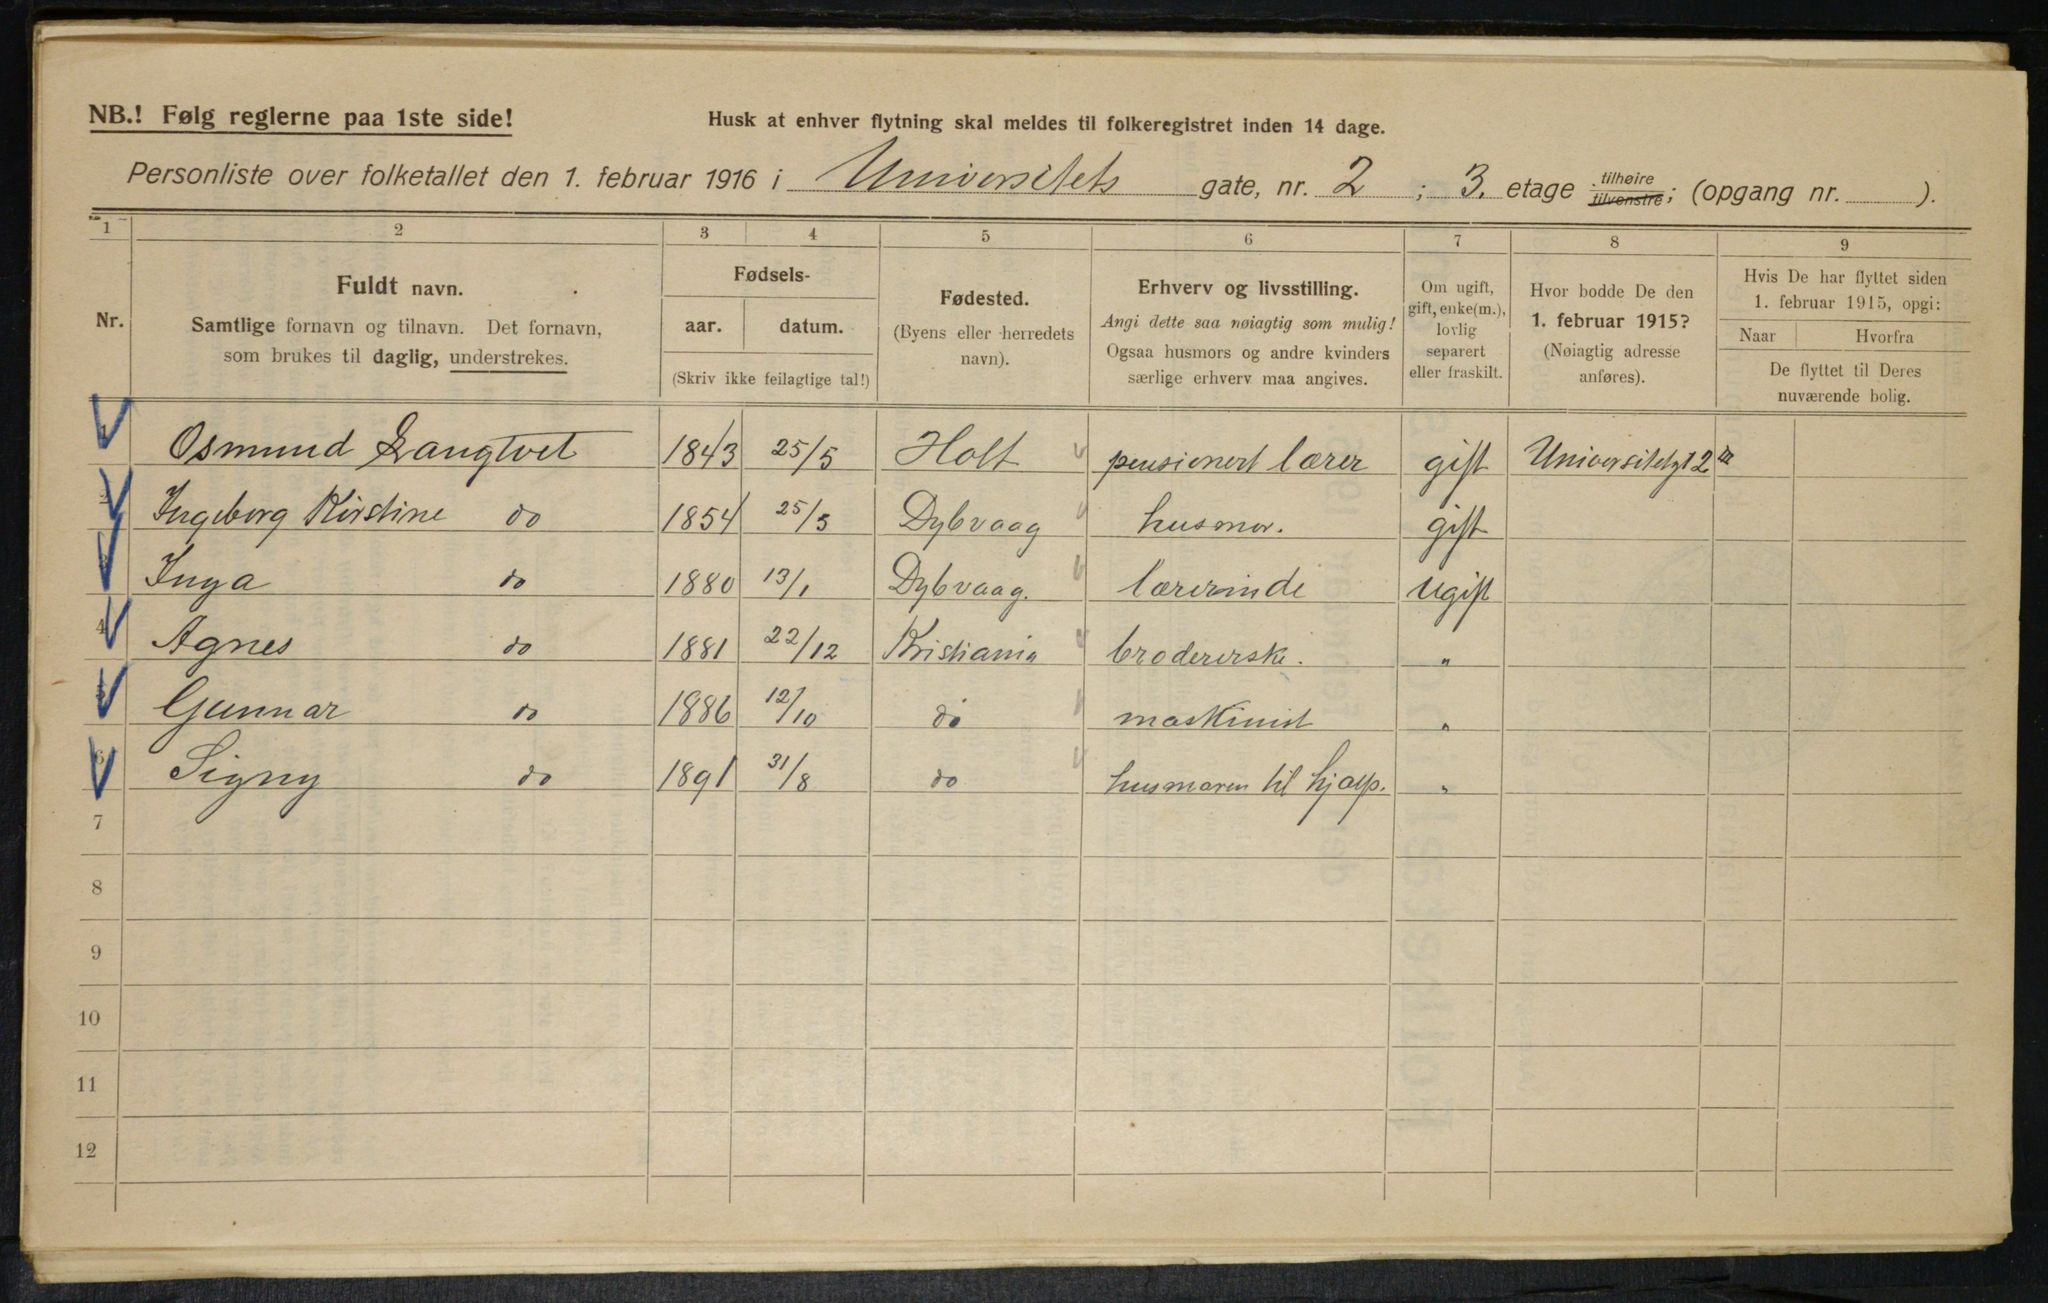 NB.! Følg reglerne paa 1ste side!
Husk at enhver flytning skal meldes til folkeregistret inden 14 dage.
Personliste over folketallet den 1. februar 1916 i Universitets gate, nr. 2 ; 3. etage tilhøire tilvenstre; (opgang nr. ).
1 2 3 4 5 6 7 8 9
Nr.
Fuldt navn.
Samtlige fornavn og tilnavn. Det fornavn,
som brukes til daglig, understrekes.
Fødsels-
aar. datum.
(Skriv ikke feilagtige tal!)
Fødested.
(Byens eller herredets
navn).
Erhverv og livsstilling.
Angi dette saa nøiagtig som mulig!
Ogsaa husmors og andre kvinders
særlige erhverv maa angives.
Om ugift,
gift, enke(m.),
lovlig
separert
eller fraskilt.
Hvor bodde De den
1. februar 1915?
(Nøiagtig adresse
anføres).
Hvis De har flyttet siden
1. februar 1915, opgi:
Naar Hvorfra
De flyttet til Deres
nuværende bolig.
Osmund Langtvet 1843 25/5 Holt pensionert lærer gift Universitetsgt 2 III
2 Ingeborg Kirstine do 1854 25/5 Dybvaag husmor. gift
Inga do 1880 13/1 Dybvaag. lærerinde ugift
4 Agnes do 1881 22/12 Kristiania brodererske. "
5 Gunnar do 1886 12/10 do maskinist "
6 Signy do 1891 31/8 do husmoren til hjælp. "
7
8
9
10
11
12